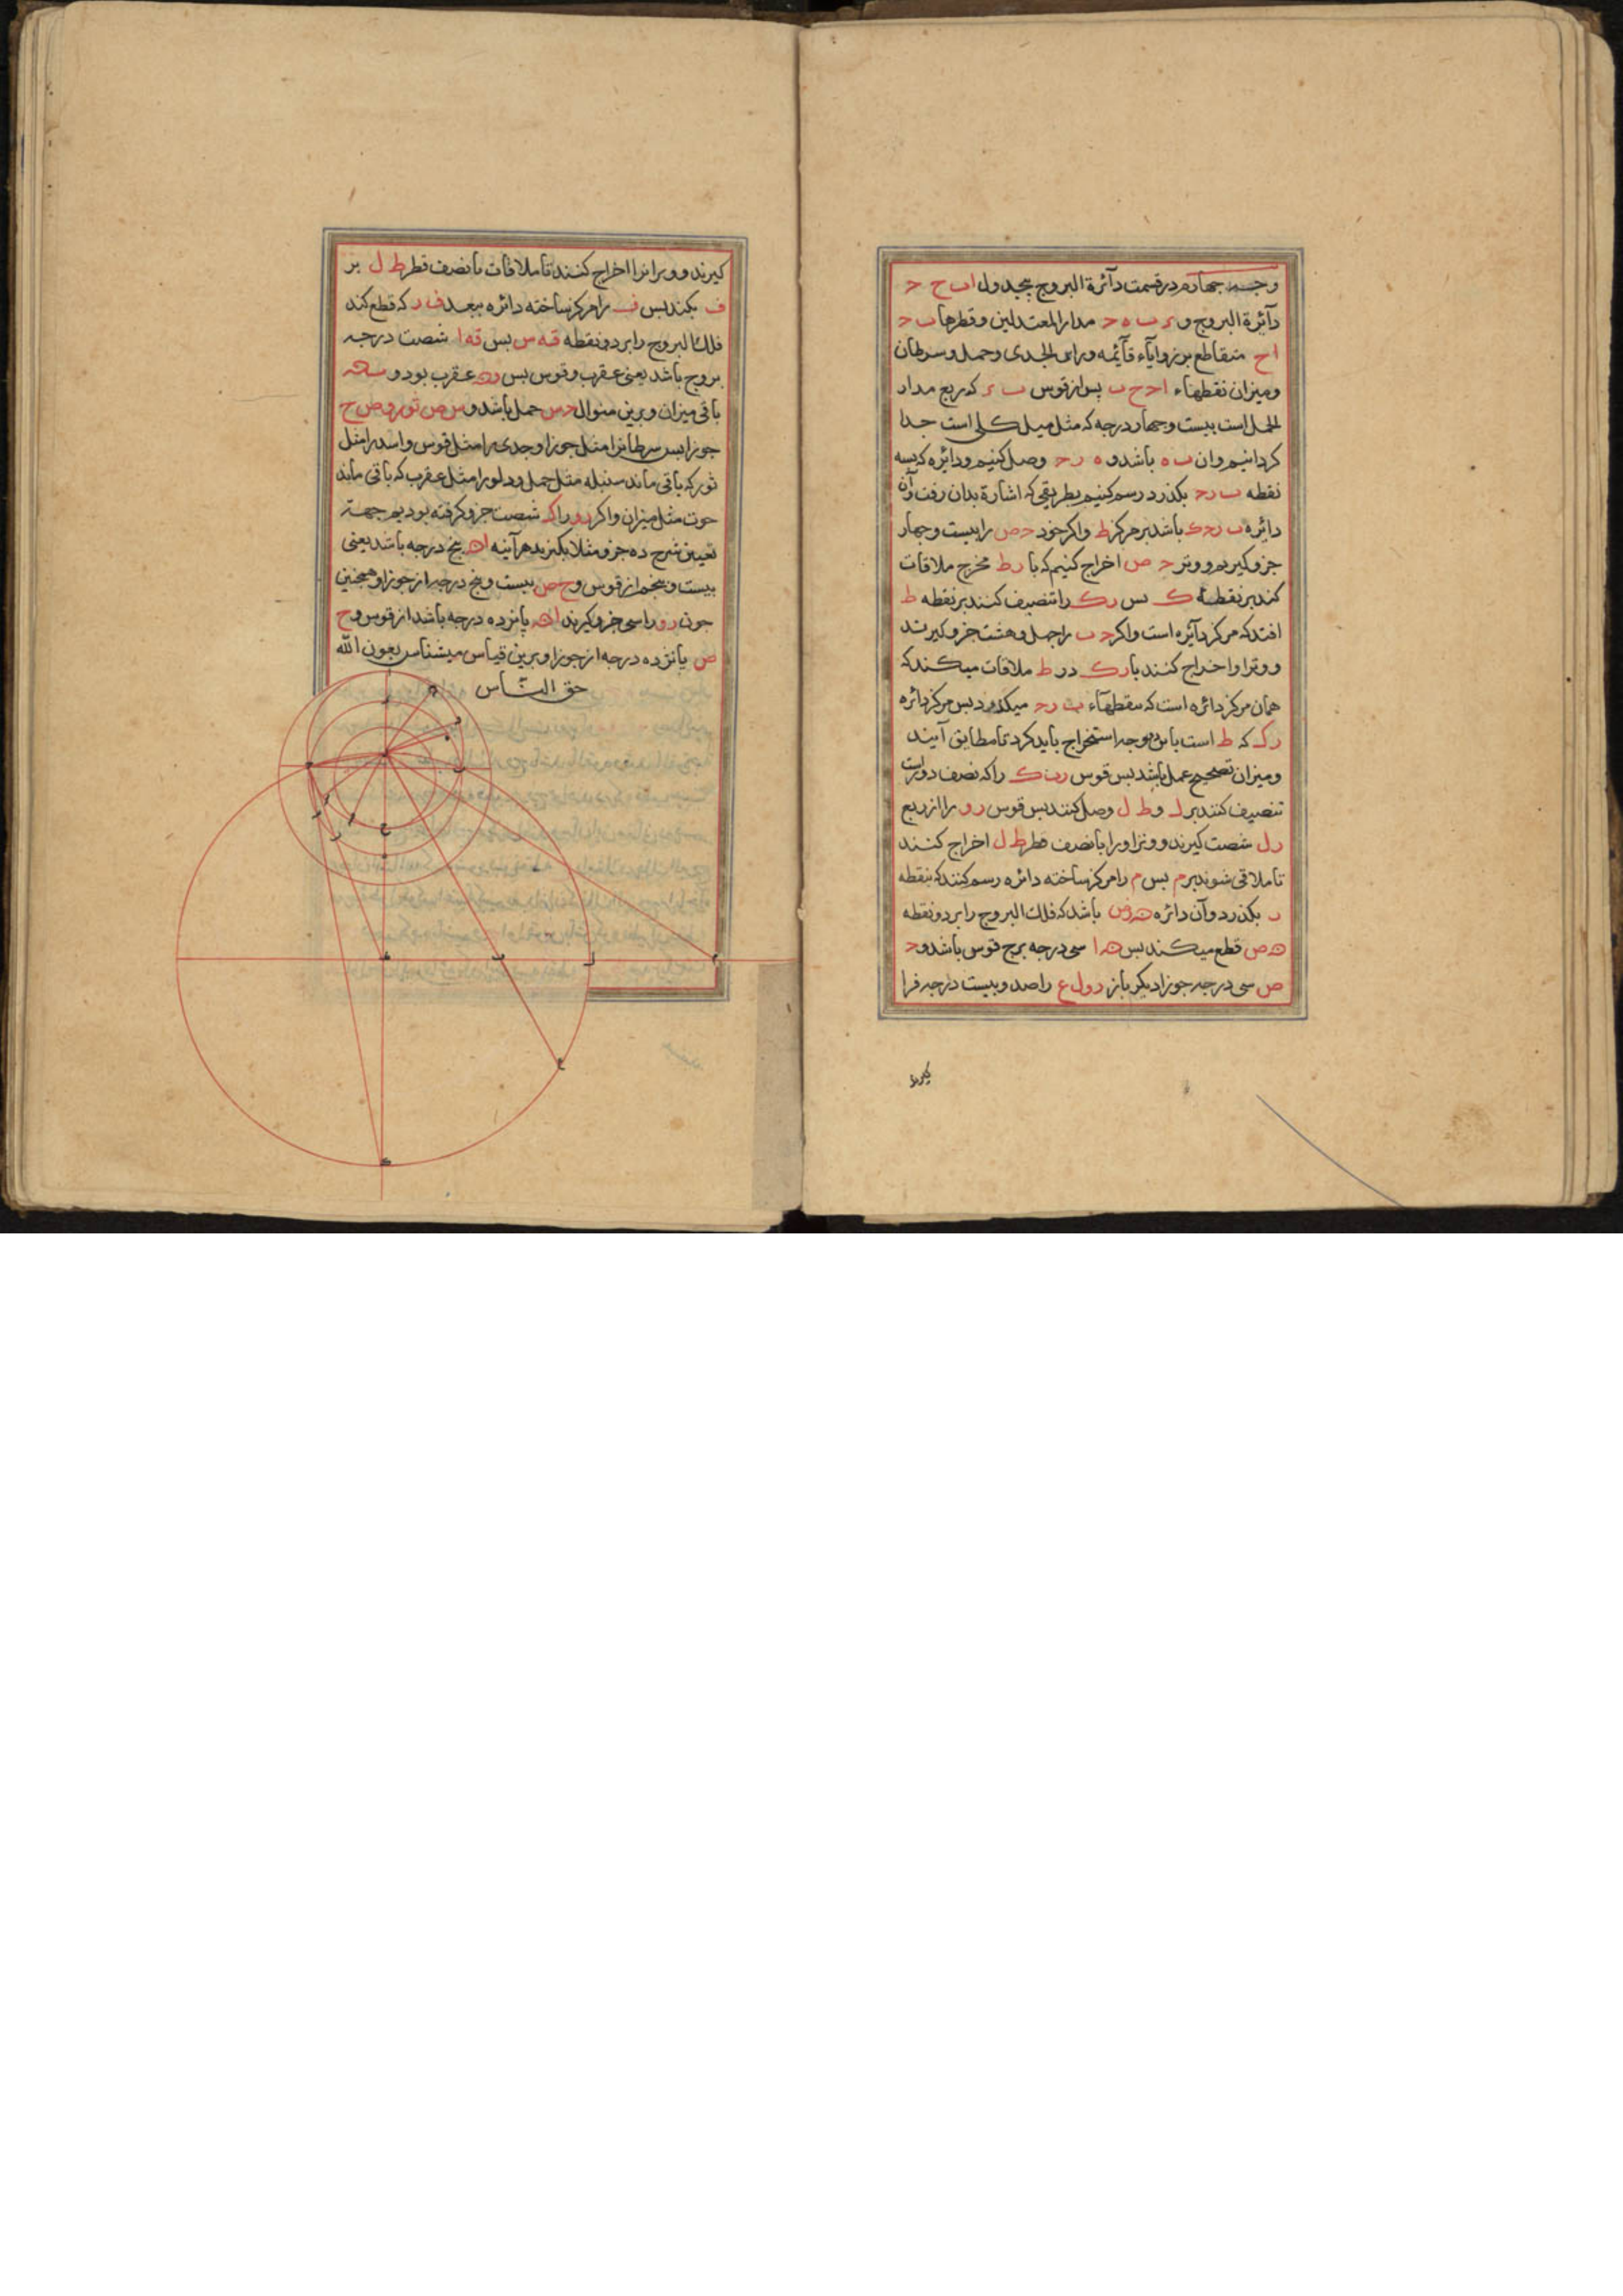 وجه چهارم در قسمت دآئرة البروج بجدول ا ب ح د
دآئرة البروج و ء ب ه د مدار المعتدلین و قطرها ب د
ا ح متقاطع بر زوایآء قآئمه و راس الجدی و حمل و سرطان
و میزان نقطهاء ا د ح ب پس از قوس ب ء که ربع مدار
الحمل است بیست و چهار درجه که مثل میل کلی است جدا
کردانیم و ان ب ه باشد و ه ر د وصل کنیم و دائره که بسه
نقطه ب ر د بکذرد رسم کنیم بطریقی که اشارة بدان رفت و آن
دائره ب ر د ک باشد بر مرکز ط و اکر خود د ص را بیست و چهار
جزو کیریم و وتر د ص اخراج کنیم که با ر ط مخرج ملاقات
کند بر نقطه ک بس ر ک را تنصیف کنند بر نقطه ط
افتد که مرکز دآئره است و اکر د ب را چهل و هشت جزو کیرند
و وترا و اخراج کنند با ر ک در ط ملاقات میکند که
همان مرکز دائره است که بنقطهآء ب ر د میکذرد بس مرکز دائره
ر ک که ط است باین دو وجه استخراج باید کرد تا مطابق آیند
و میزان تصحیح عمل باشد بس قوس ر ب ک را که نصف دور است
تنصیف کنند بر ل و ط ل وصل کنند بس قوس ر و را از ربع
ر ل شصت کیرند و وتر او را با نصف قطر ط ل اخراج کنند
تا ملاقی شوند بر م بس م را مرکز ساخته دائره رسم کنند که بنقطه
ر بکذرد و آن دائره باشد که فلک البروج را بر دو نقطه
ه ص قطع میکند بس ه ا سی درجه برج قوس باشد و د
ص سی درجه جوزا دیکر باز ر و ل ع را صد و بیست درجه فرا
کیرند
کیرند و وترانرا اخراج کنند تا ملاقات با نصف قطر ط ل بر
ف بکند بس ف را مرکز ساخته دائره ببعد ف ر که قطع کند
فلک البروج را بر دو نقطه قه س بس قه ا شصت درجه
بروج باشد یعنی عقرب و قوس بس عقرب بود و
باقی میزان و برین منوال د س حمل باشد و س ص ثور و ص ح
جوزا بس سرطانرا مثل جوزا و جدی را مثل قوس و اسد را مثل
ثور که باقی ماند سنبله مثل حمل و دلو را مثل عقرب که باقی ماند
حوت مثل میزان و اکر ر و را که شصت جزو کرفته بودیم جهة
تعیین شرح ده جزو مثلا بکیرند هرآینه ا ه پنج درجه باشد یعنی
بیست و پنجم از قوس و ح ص بیست و پنج درجه از جوزا و همچنین
چون ر و را سی جزو کیرند ا ه پانزده درجه باشد از قوس و ح
ص پانزده درجه از جوزا و برین قیاس میشناس بعون الله
حق الشناس